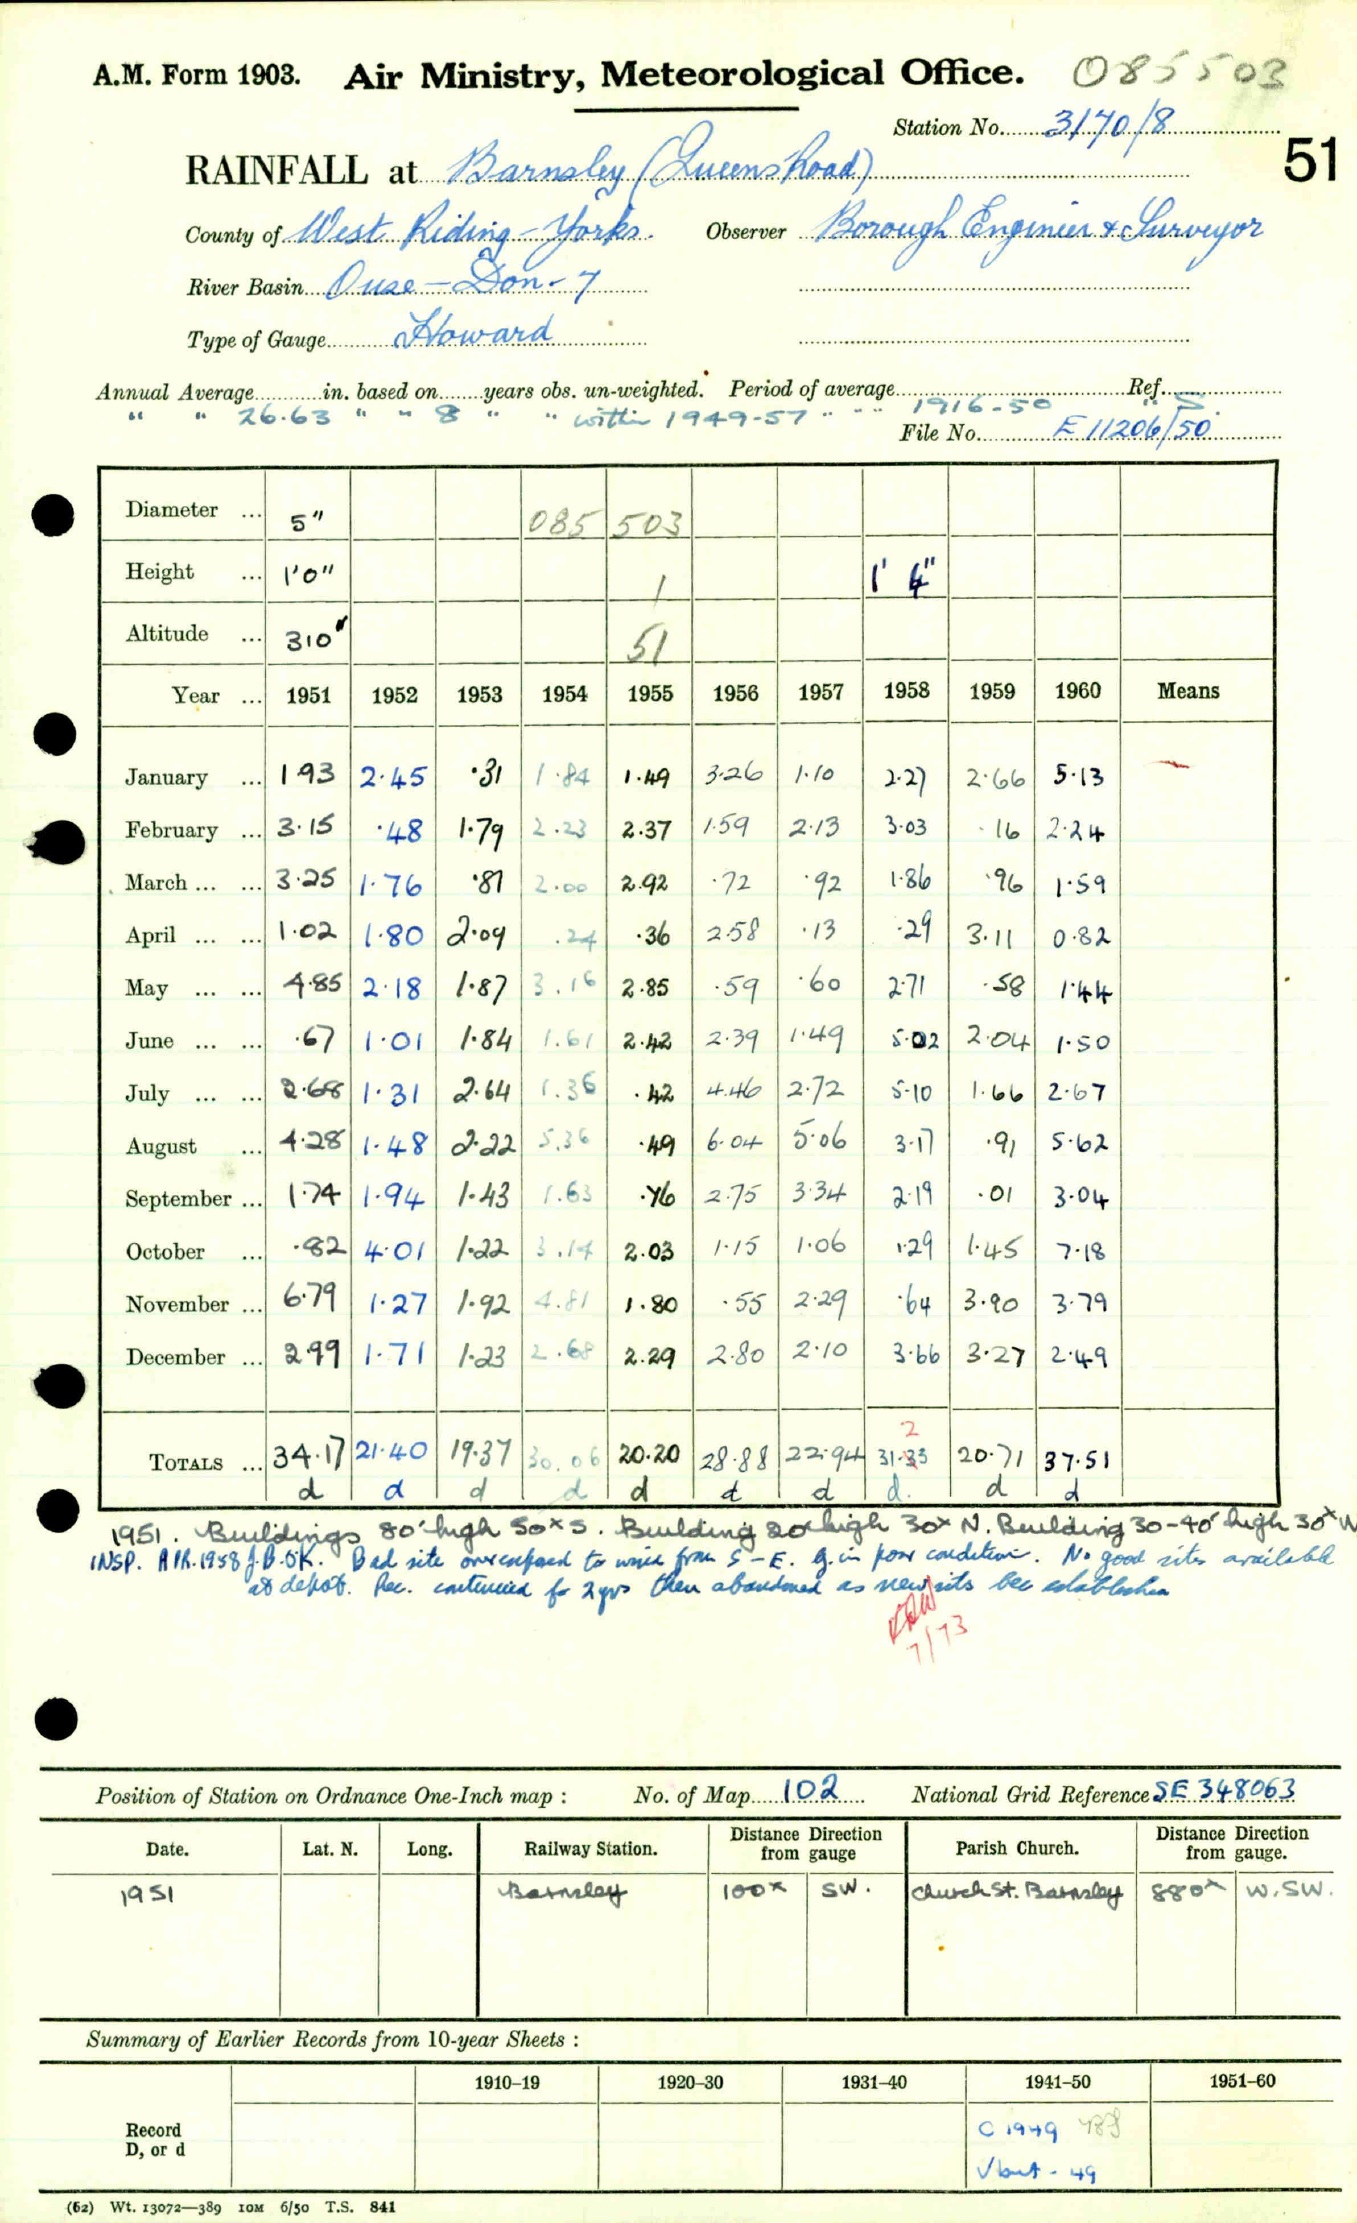 A.M. Form 1903. Air Ministry, Meteorological Office. 085503
Station No. 3170/8
51
RAINFALL at Barnsley (Queens Road)
County of West Riding - Yorks. Observer Borough Engineer & Surveyor
River Basin Ouse - Don - 7
Type of Gauge Howard
Annual Average in. based on years obs. un-weighted. Period of average Ref.
" " 26.63 " " 8 " " within 1949-57 " " " 1916-50 " S.
File No. E 11206/50
Diameter ... 5" 085 503
Height ... 1'0" 1 1' 4"
Altitude ... 310' 51
Year ... 1951 1952 1953 1954 1955 1956 1957 1958 1959 1960 Means
January ... 1.93 2.45 .31 1.84 1.49 3.26 1.10 2.27 2.66 5.13
February ... 3.15 .48 1.79 2.23 2.37 1.59 2.13 3.03 .16 2.24
March ... ... 3.25 1.76 .81 2.00 2.92 .72 .92 1.86 .96 1.59
April ... ... 1.02 1.80 2.09 .24 .36 2.58 .13 .29 3.11 0.82
May ... ... 4.85 2.18 1.87 3.16 2.85 .59 .60 2.71 .58 1.44
June ... ... .67 1.01 1.84 1.61 2.42 2.39 1.49 5.02 2.04 1.50
July ... ... 2.68 1.31 2.64 1.36 .42 4.46 2.72 5.10 1.66 2.67
August ... 4.28 1.48 2.22 5.36 .49 6.04 5.06 3.17 .91 5.62
September ... 1.74 1.94 1.43 1.63 .76 2.75 3.34 2.19 .01 3.04
October ... .82 4.01 1.22 3.14 2.03 1.15 1.06 1.29 1.45 7.18
November ... 6.79 1.27 1.92 4.81 1.80 .55 2.29 .64 3.90 3.79
December ... 2.99 1.71 1.23 2.68 2.29 2.80 2.10 3.66 3.27 2.49
2
TOTALS ... 34.17 21.40 19.37 30.06 20.20 28.88 22.94 31.33 20.71 37.51
d d d d d d d d. d d
1951. Buildings 80' high 50x S. Building 20' high 30x N. Building 30-40' high 30x W
INSP. APR. 1958 J.B. OK. Bad site overexposed to wind from S-E. g. in poor condition. No good sites available
at depot. Rec. continued for 2 yrs then abandoned as new site bec established
7/73
Position of Station on Ordnance One-Inch map : No. of Map 102 National Grid Reference SE 348063
Date. Lat. N. Long. Railway Station. Distance from Direction gauge Parish Church. Distance from Direction gauge.
1951 Barnsley 100x SW. Church St. Barnsley 880x W.SW.
Summary of Earlier Records from 10-year Sheets :
1910-19 1920-30 1931-40 1941-50 1951-60
Record C 1949
D, or d
- 49
(62) Wt. 13072—389 10M 6/50 T.S. 841